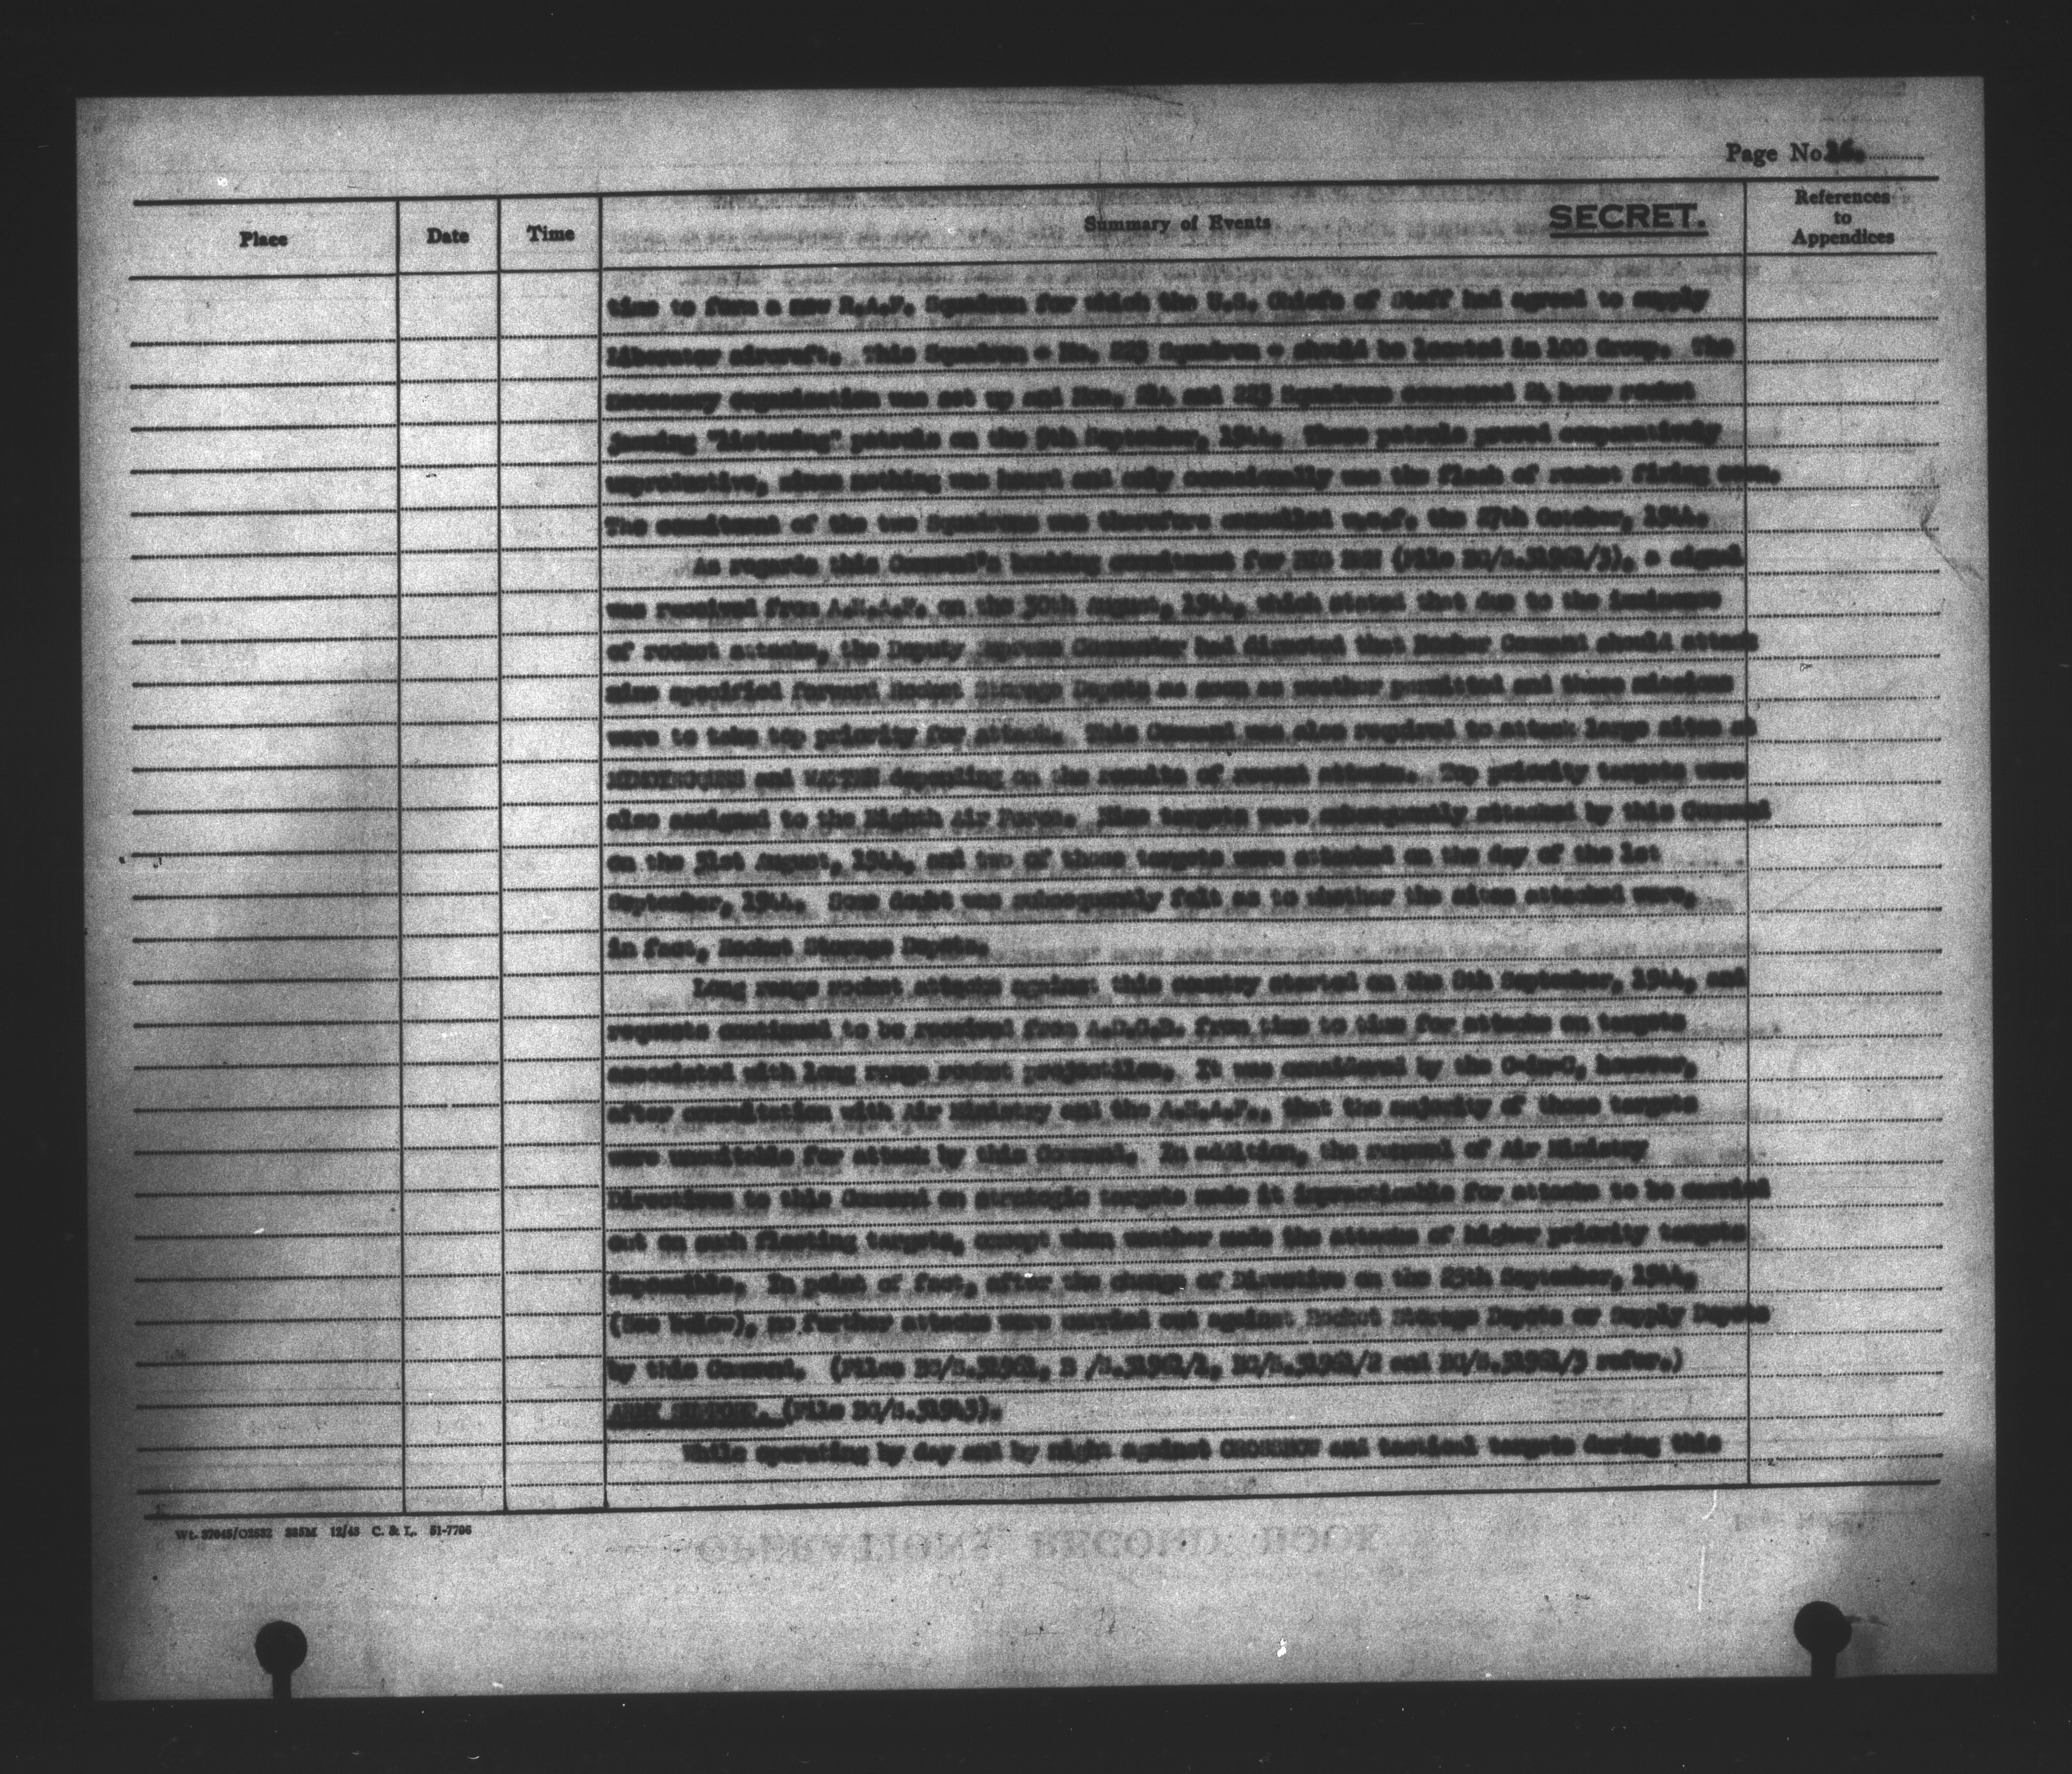 Page No 26.
Place
Date
Time
Summary of Events
SECRET.
References
to
Appendices
time to form a new R.A.F. Squadron for which the U.S. Chiefs of Staff had agreed to supply
Liberator aircraft. This Squadron - No. 223 Squadron - should be located in 100 Group. The
necessary organisation was set up and Nos. 214 and 223 Squadrons commenced 24 hour rocket
jamming "listening" patrols on the 9th September, 1944. These patrols proved comparatively
unproductive, since nothing was heard and only occasionally was the flash of rocket firing seen.
The commitment of the two Squadrons was therefore cancelled w.e.f. the 27th October, 1944.
As regards this Command's bombing commitment for BIG BEN (File BC/S.31961/3), a signal
was received from A.E.A.F. on the 30th August, 1944, which stated that due to the imminence
of rocket attacks, the Deputy Supreme Commander had directed that Bomber Command should attack
nine specified forward Rocket Storage Depots as soon as weather permitted and these missions
were to take top priority for attack. This Command was also required to attack large sites at
MIMOYECQUES and WATTEN depending on the results of recent attacks. Top priority targets were
also assigned to the Eighth Air Force. Nine targets were subsequently attacked by this Command
on the 31st August, 1944, and two of those targets were attacked on the day of the 1st
September, 1944. Some doubt was subsequently felt as to whether the sites attacked were,
in fact, Rocket Storage Depots.
Long range rocket attacks against this country started on the 8th September, 1944, and
requests continued to be received from A.D.G.B. from time to time for attacks on targets
associated with long range rocket projectiles. It was considered by the C-in-C, however,
after consultation with Air Ministry and the A.E.A.F., that the majority of these targets
were unsuitable for attack by this Command. In addition, the renewal of Air Ministry
Directions to this Command on strategic targets made it impracticable for attacks to be carried
out on such fleeting targets, except when weather made the attacks of higher priority targets
impossible. In point of fact, after the change of Directive on the 25th September, 1944,
(See below), no further attacks were carried out against Rocket Storage Depots or Supply Depots
by this Command. (Files BC/S.31961, B /S.31961/1, BC/S.31961/2 and BC/S.31961/3 refer.)
ARMY SUPPORT. (File BC/S.31943).
While operating by day and by night against CROSSBOW and tactical targets during this
Wt. 37045/C2532 325M 12/43 C. & L. 51-7706
OPERATIONS RECORD BOOK